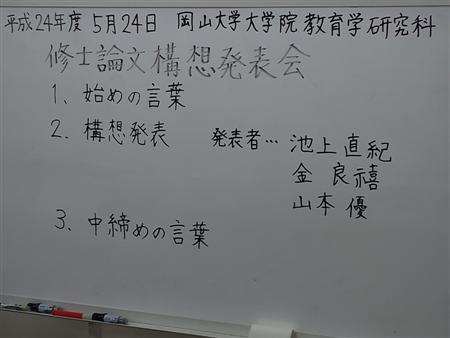 平成24年度 5月24日 岡山大学大学院教育学研究科
修士論文構想発表会
1、始めの言葉
2、構想発表 発表者…池上直紀
金 良禧
山本 優
3、中締めの言葉